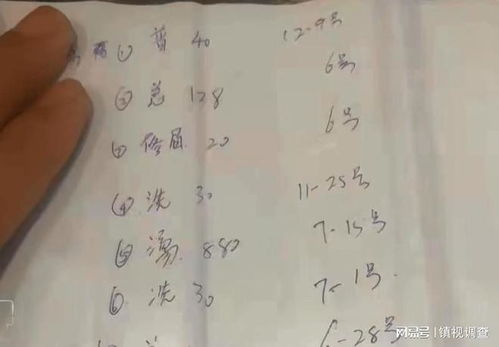 ① 首 40 12-9号
② 总 128 6号
③ 修眉 20 6号
④ 洗 30 11-25号
⑤ 烫 880 7-15号
⑥ 洗 30 7-1号
6-28号
搜狐号@镇视调查